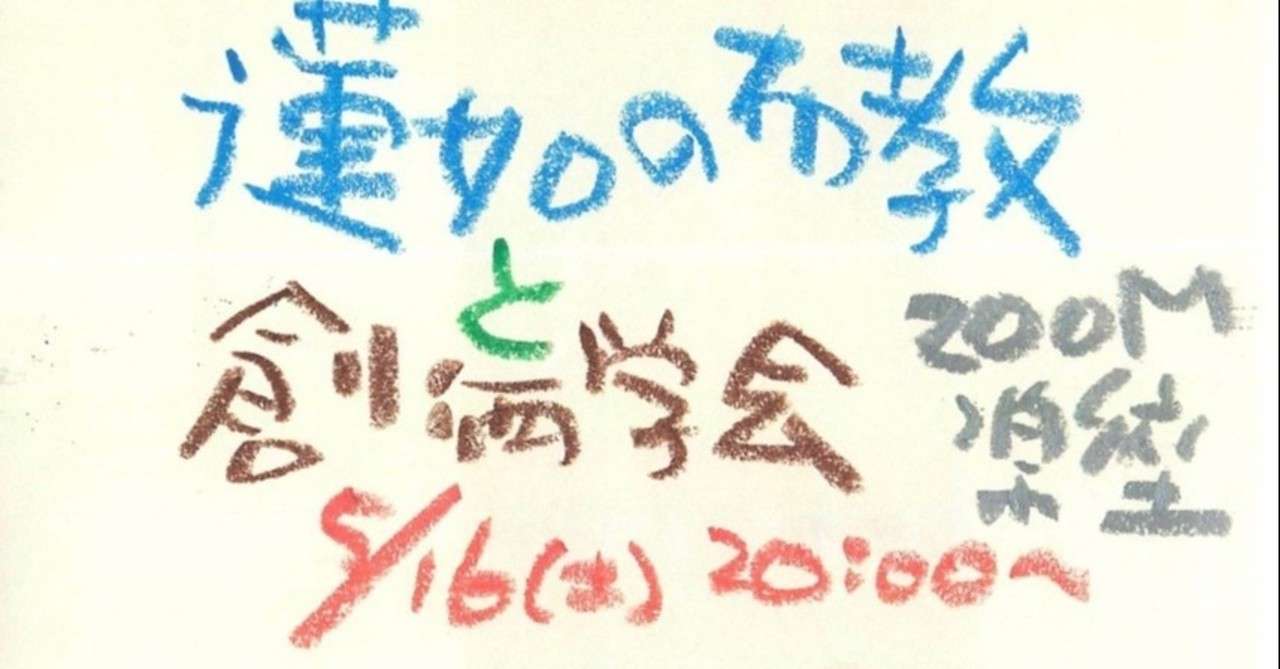 蓮如の布教
と
創価学会
ZOOM
楽塾
5/16(土) 20:00~